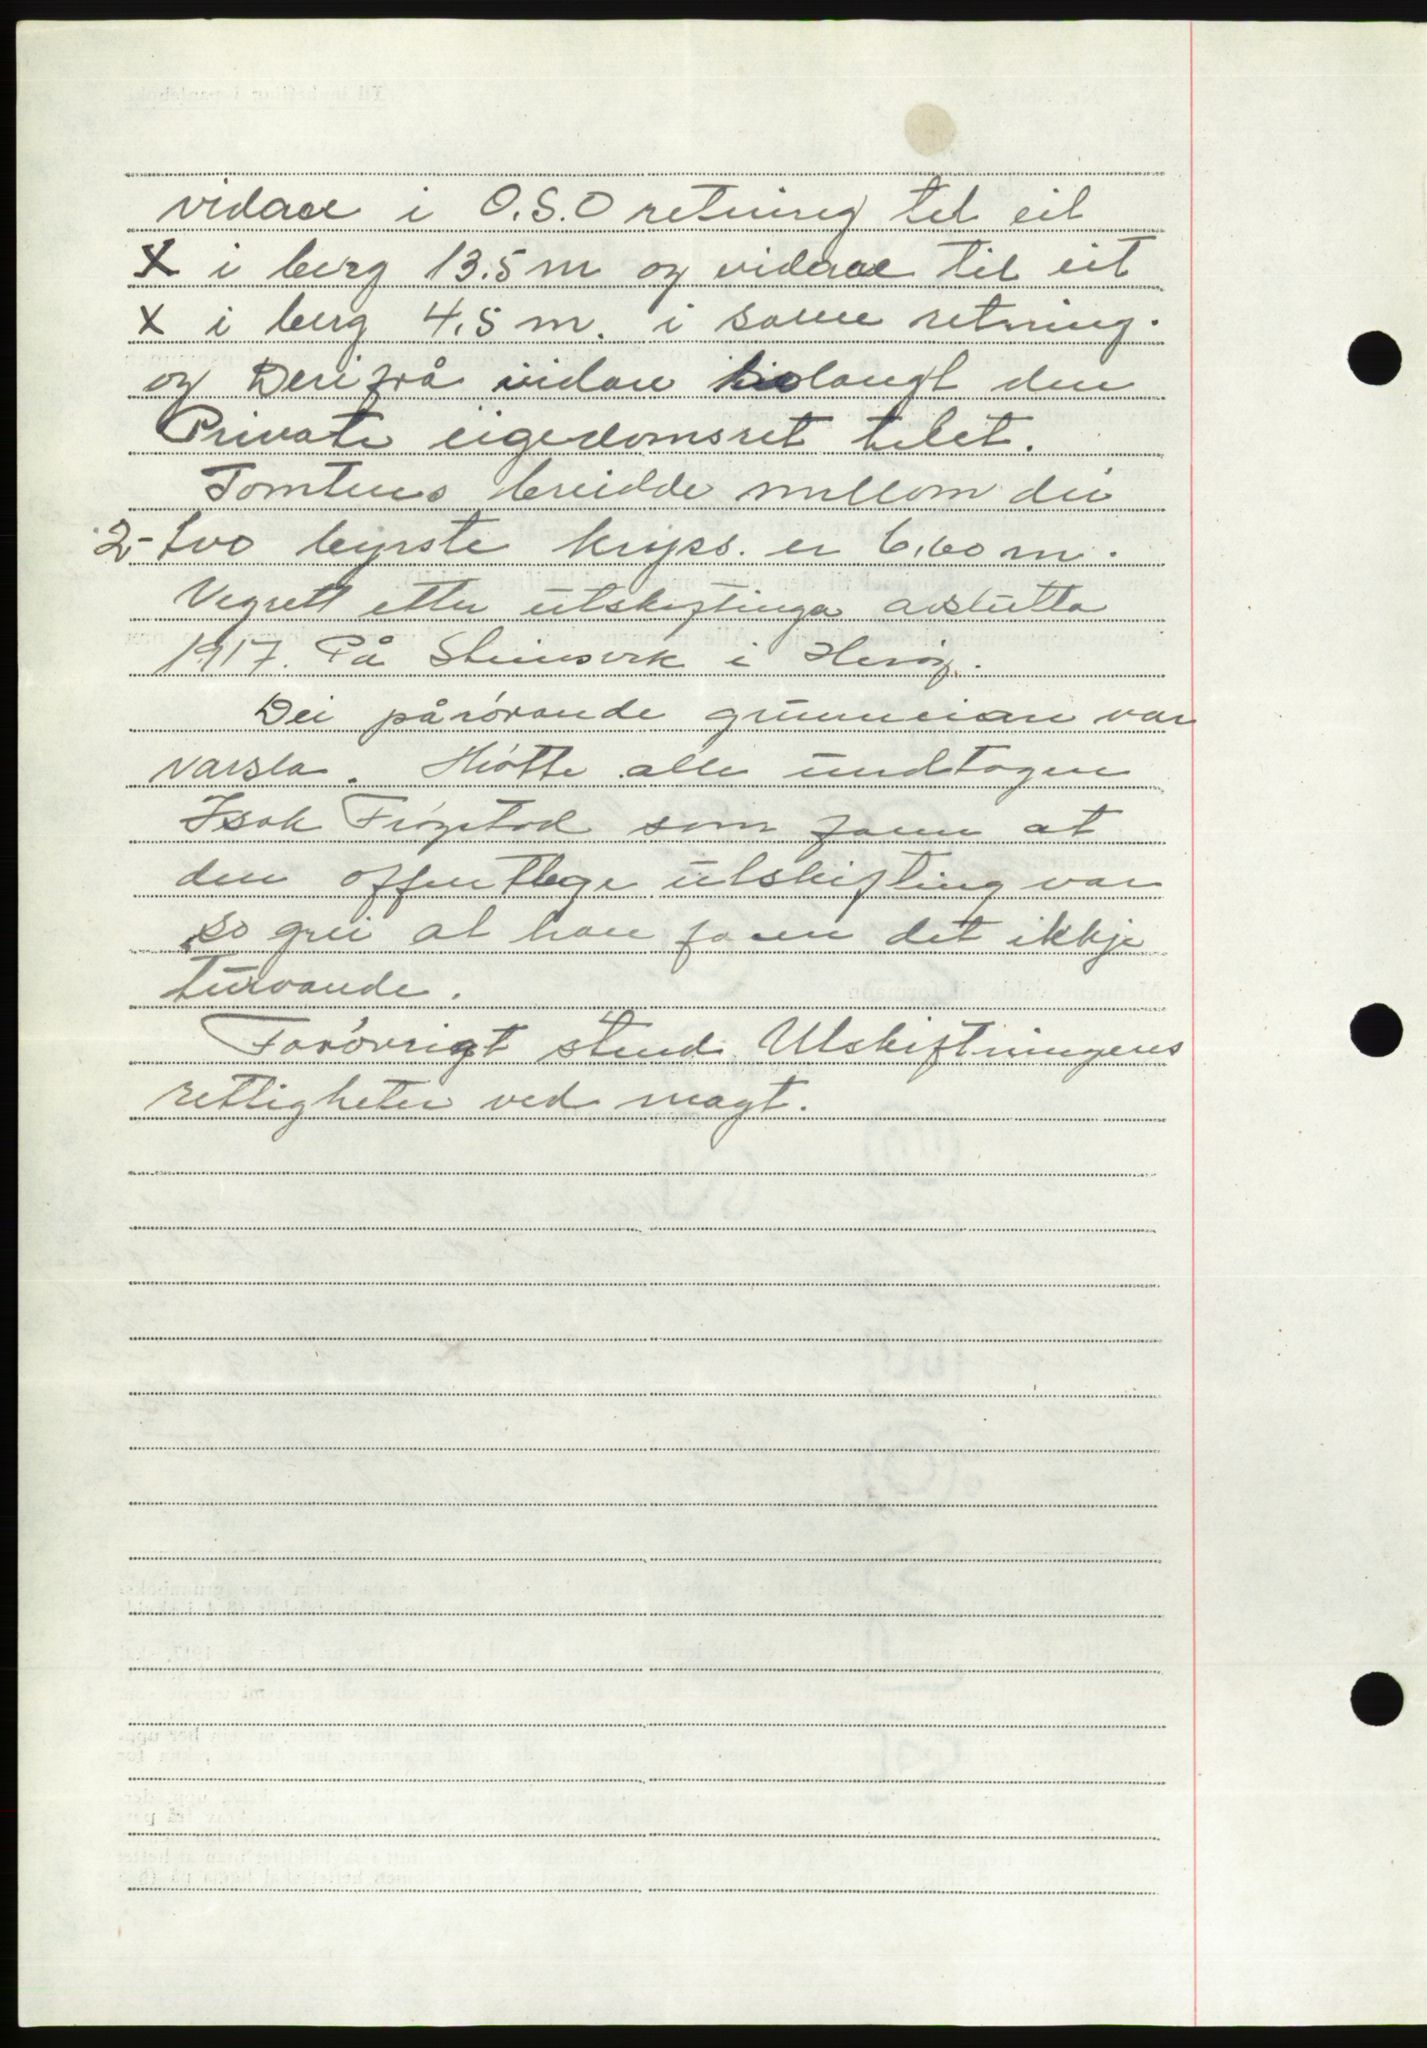 vidare i O.S.O retning til eit
X i berg 13.5 m og vidare til eit
X i berg 4,5 m. i same retning.
og Derifrå vidare so langt den
Private eigedomsret tilet.
Tomtens breidde millom dei
2-tvo øvrste kryss. er 6,60 m.
Vegrett etter utskiftinga avslutta
1917. På Steinsvik i Herøy.
Dei pårørande grunneiare var
varsla. Møtte alle undtagen
Isak Frøystad som fann at
den offentlege utskifting var
so grei at han fann det ikkje
turvande.
Forøvrigt stend Utskiftningens
rettigheter ved magt.